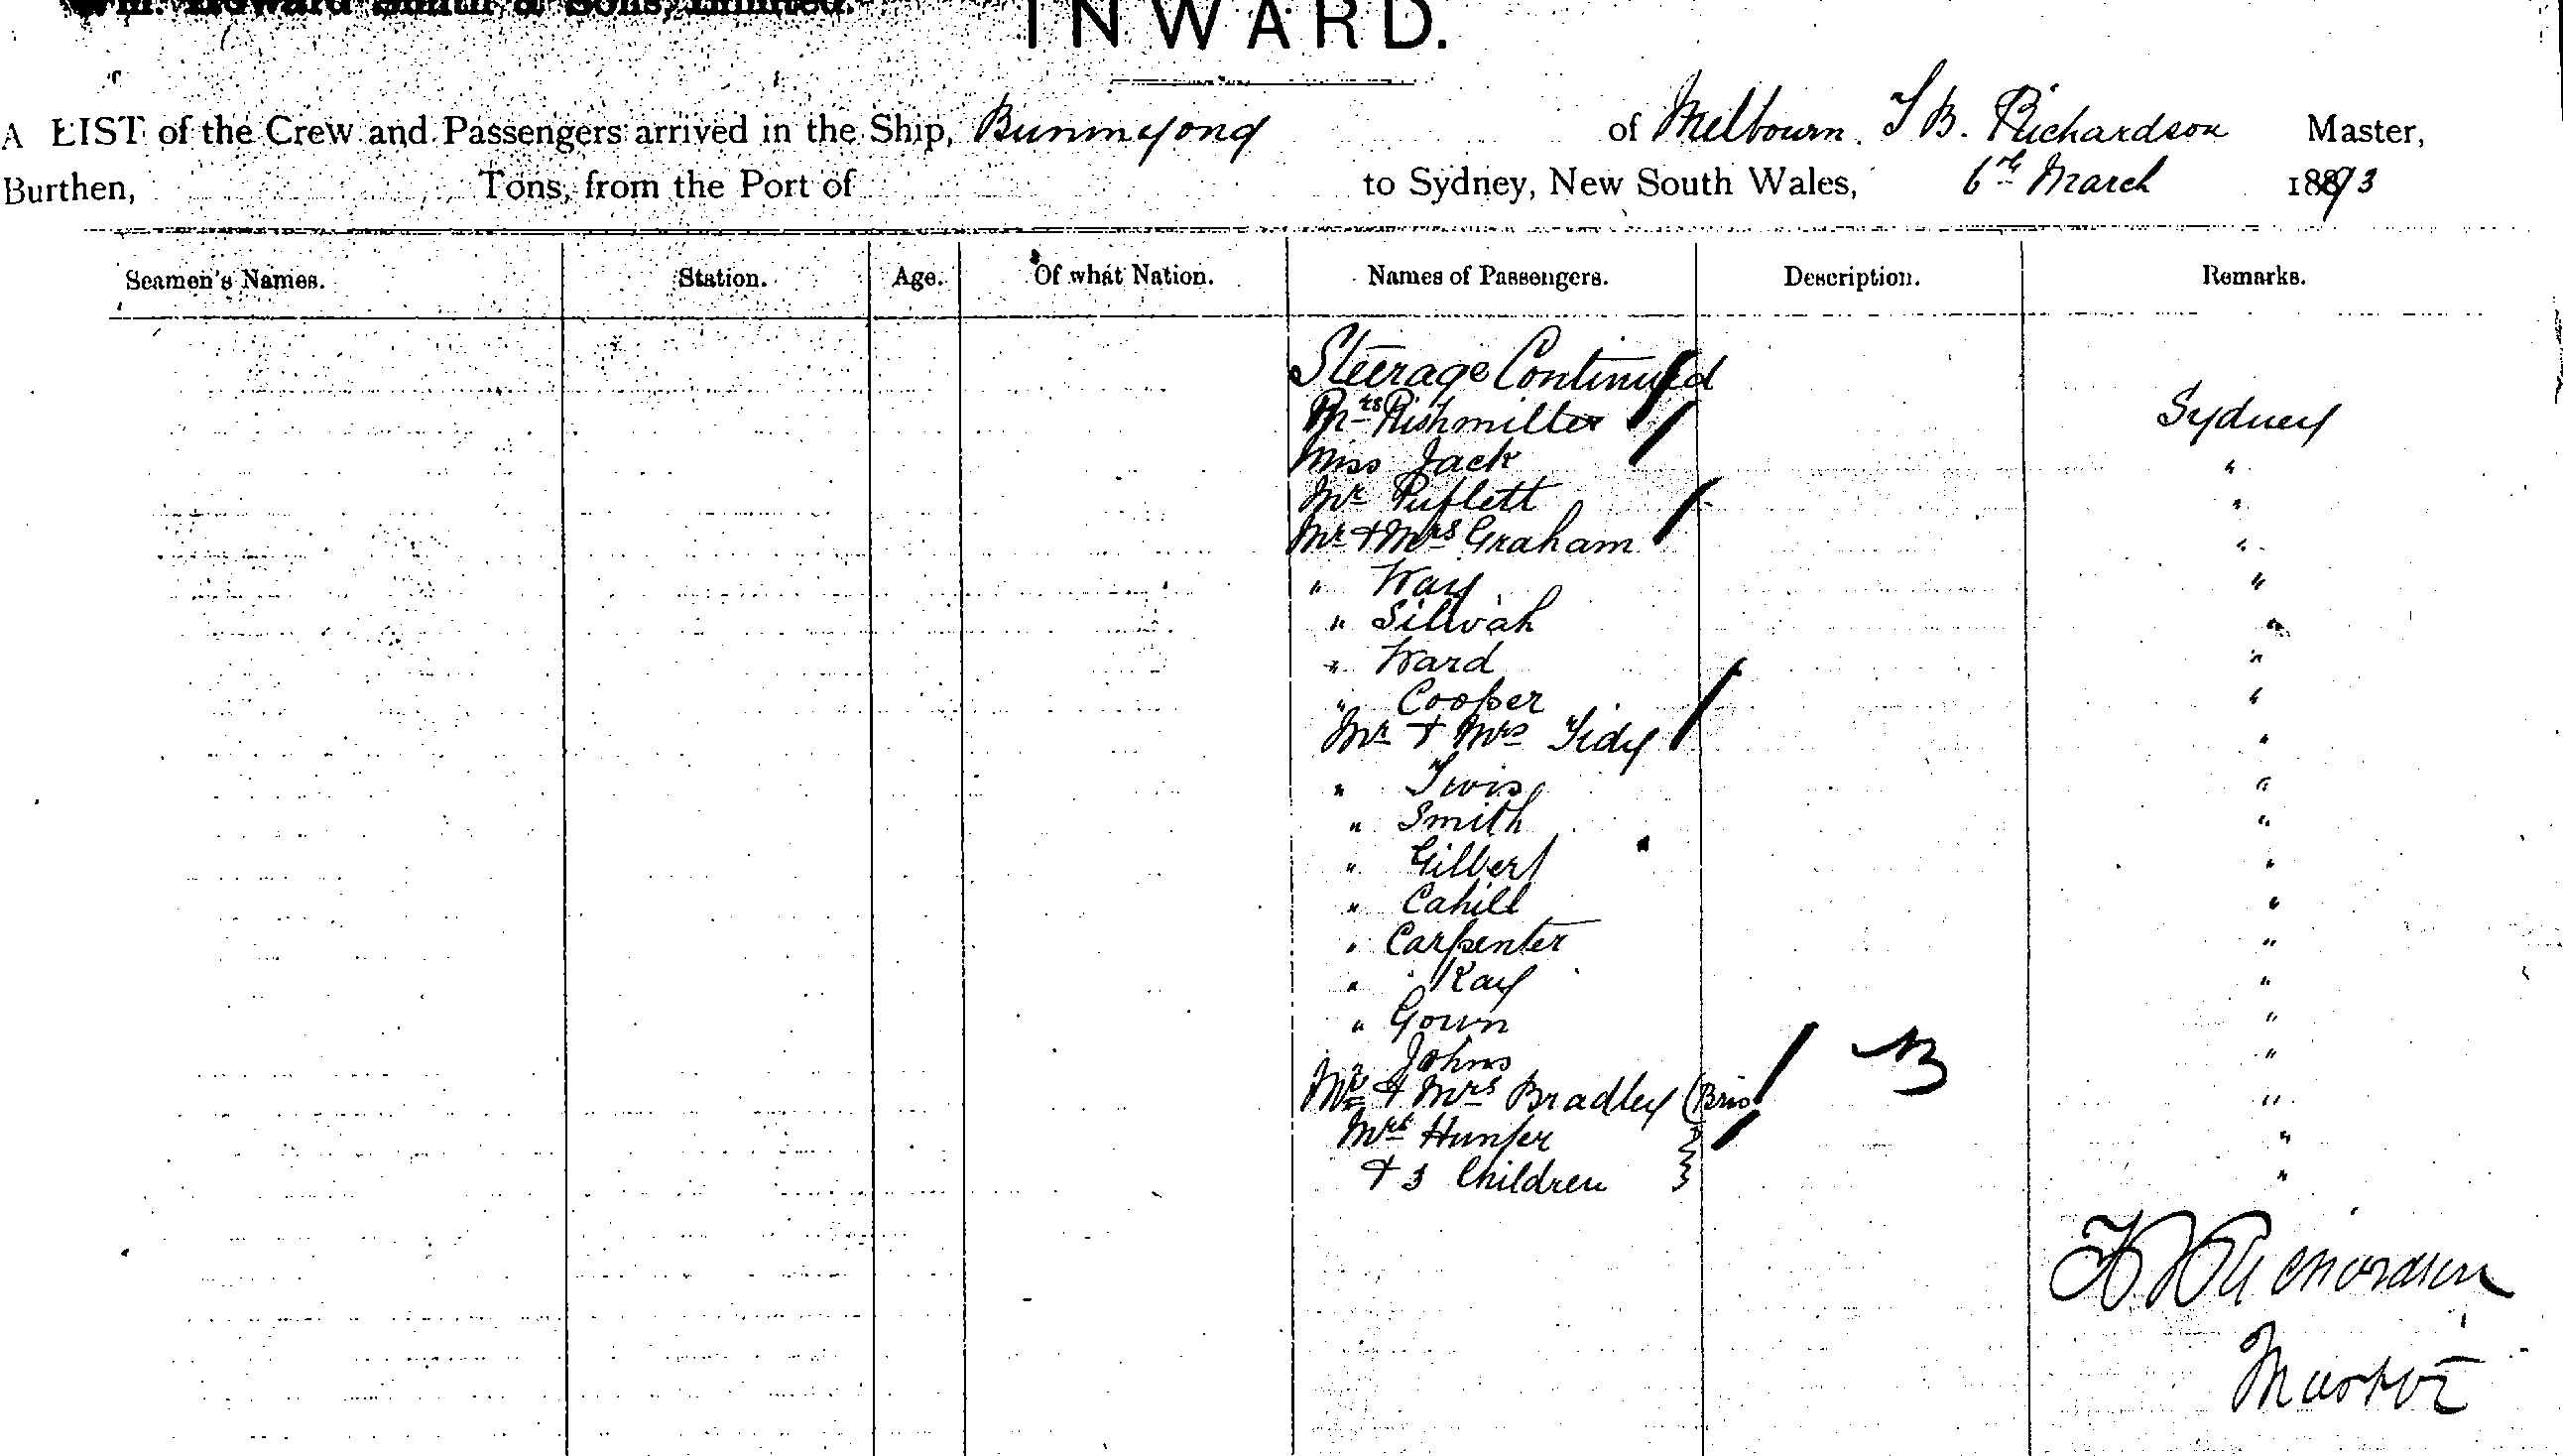 Wm. Howard Smith & Sons, Limited.
INWARD.
A LIST of the Crew and Passengers arrived in the Ship, Buninyong of Melbourn. T B. Richardson Master,
Burthen, Tons, from the Port of to Sydney, New South Wales, 6th March 1893
Seamen's Names. Station. Age. Of what Nation. Names of Passengers. Description. Remarks.
Steerage Continued
Mrs Rishmiller Sydney
Miss Jack "
Mr Puflett "
Mr & Mrs Graham "
" Way "
" Sillvah "
" Ward "
" Cooper "
Mr & Mrs Tidy "
" Twis "
" Smith "
" Gilbert "
" Cahill "
" Carpenter "
" Kay "
" Gown "
" Johns "
Mr & Mrs Bradley (Bris "
Mrs Hunter "
& 3 Children "
Richardson
Master